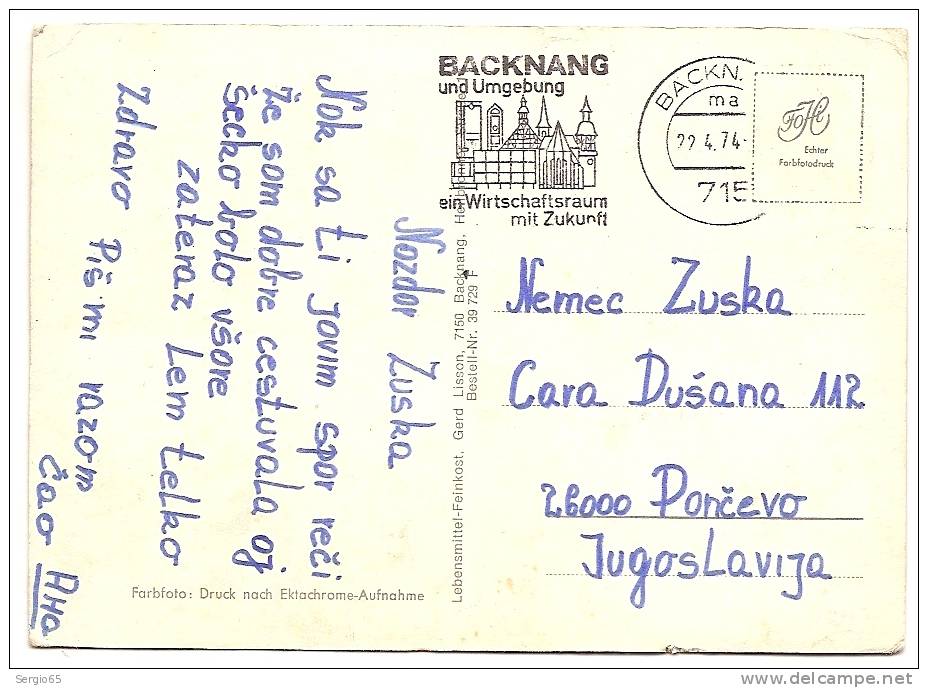 BACKNANG
und Umgebung
ein Wirtschaftsraum
mit Zukunft
BACKN
ma
22.4.74
715
FoHi
Echter
Farbfotodruck
Nazdor Zuska
Nok sa ti jovim spor reči
Že som dobre cestuvala oj
šecko bolo všore
zateraz Lem telko
Zdravo Piš mi razom
čao Ana
Nemec Zuska
Cara Dušana 112
26000 Pončevo
Jugoslavija
Lebensmittel-Feinkost, Gerd Lisson, 7150 Backnang,
Bestell-Nr. 39 729 F
Farbfoto: Druck nach Ektachrome-Aufnahme
Sergio65
delcampe.net